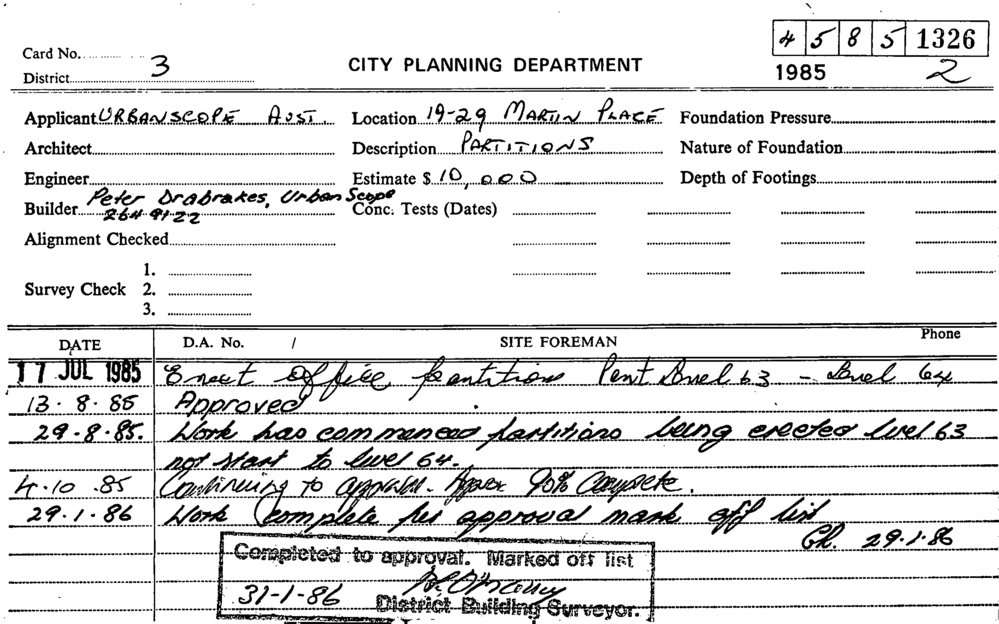 4 5 8 5 1326
Card No.
District 3
CITY PLANNING DEPARTMENT
1985 2
Applicant URBANSCOPE AUST. Location 19-29 MARTIN PLACE Foundation Pressure
Architect Description PARTITIONS Nature of Foundation
Engineer Estimate $ 10,000 Depth of Footings
Builder Peter Drabrakes, Urban Scope Conc. Tests (Dates)
264 9122
Alignment Checked
1.
Survey Check 2.
3.
DATE D.A. No. / SITE FOREMAN Phone
17 JUL 1985 Erect office partitions Part Level 63 - Level 64
13.8.85 Approved
29.8.85. Work has commenced partitions being erected level 63
not start to level 64.
4.10.85 Continuing to approval. Approx 90% Complete.
29.1.86 Work complete per approval mark off list
29.1.86
Completed to approval. Marked off list
31-1-86
District Building Surveyor.